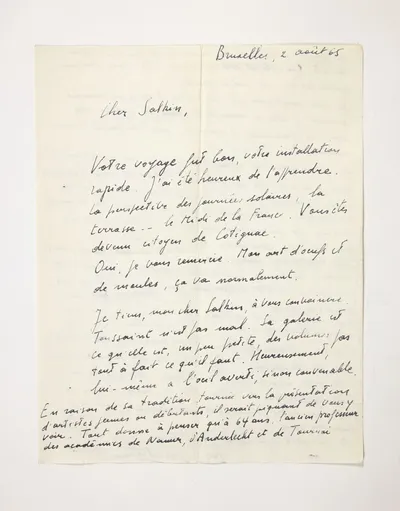 Bruxelles, 2 août 65
Cher Salkin,
Votre voyage fût bon, votre installation
rapide. J'ai été heureux de l'apprendre.
La perspective des journées solaires, la
terrasse -- le Midi de la France. Vous êtes
devenu citoyen de Cotignac.
Oui, je vous remercie. Mon art d'oeufs et
de moules, ça va normalement.
Je tiens, mon cher Salkin, à vous convaincre.
Toussaint n'est pas mal. Sa galerie est
ce qu'elle est, un peu petite, des volumes pas
tout à fait ce qu'il faut. Heureusement,
lui-même a l'oeil averti, sinon convenable.
En raison de sa tradition tournée vers la présentation
d'artistes jeunes ou débutants, il serait piquant de vous y
voir. - Tout donne à penser qu'à 64 ans, l'ancien professeur
des académies de Namur, d'Anderlecht et de Tournai